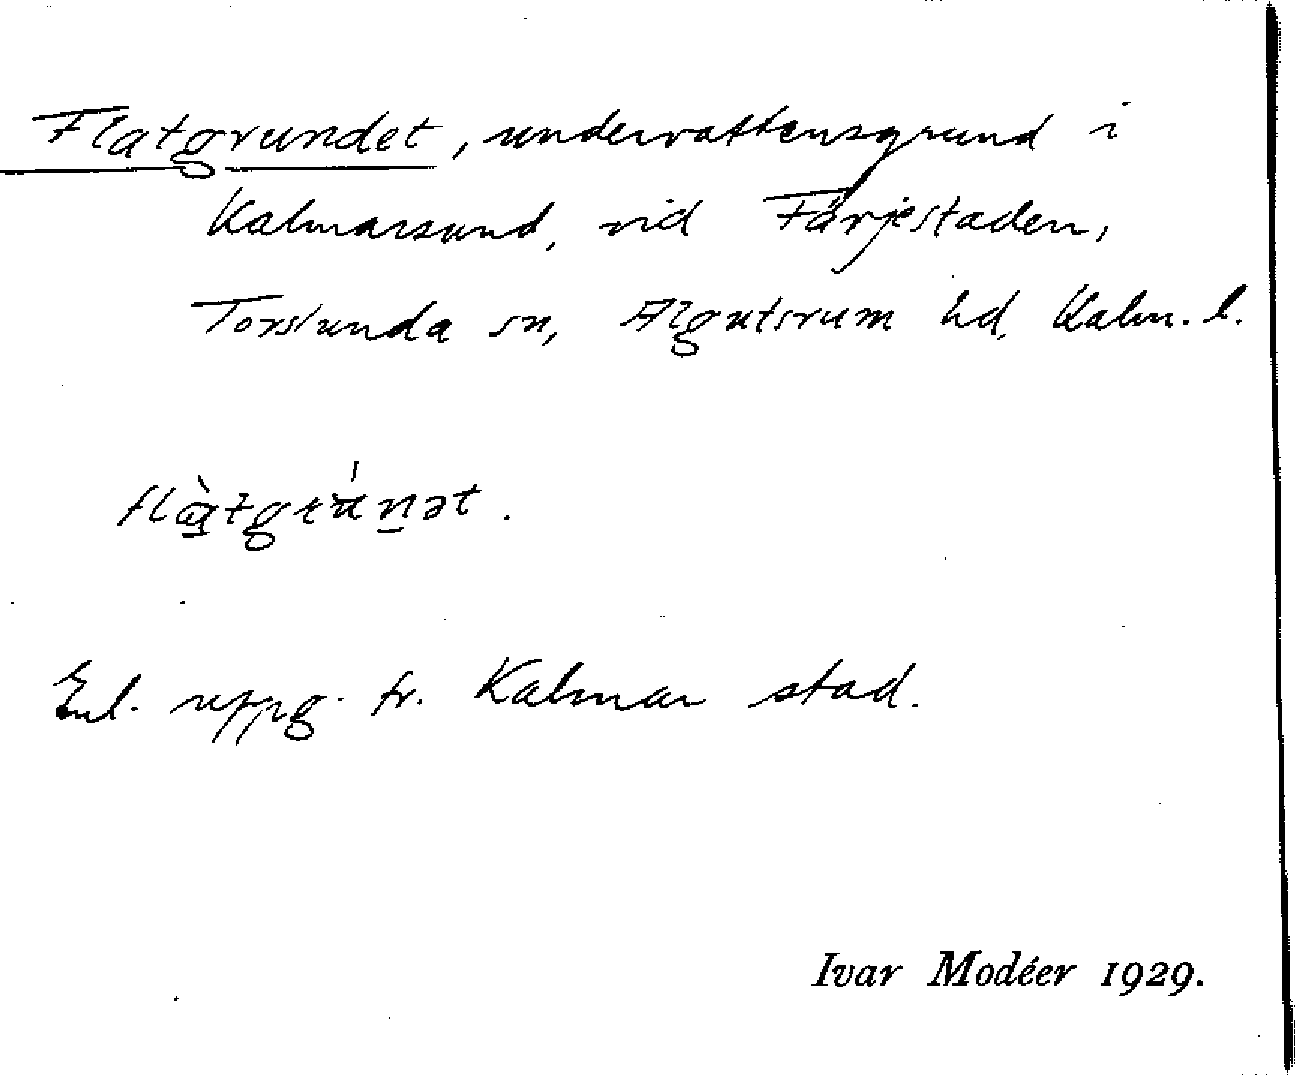 Flatgrundet, undervattensgrund i
Kalmarsund, vid Färjestaden,
Torslunda sn, Algutsrum hd, Kalm. l.
Enl. uppg. fr. Kalmar stad.
Ivar Modéer 1929.